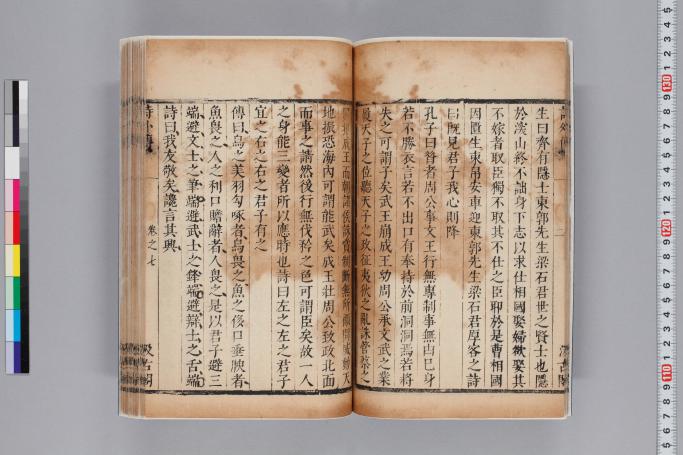 生曰齊有隱士東郭先生梁石君世之賢士也隱
於深山終不詘身下志以求仕相國娶婦欲娶其
不嫁者取臣獨不取其不仕之臣耶於是曹相國
因匱生束帛安車迎東郭先生梁石君厚客之詩
曰既見君子我心則降
孔子曰昔者周公事文王行無專制事無由己身
若不勝衣言若不出口有奉持於前洞洞焉若將
失之可謂子矣武王崩成王幼周公承文武之業
履天子之位聽天子之政征夷狄之亂誅管蔡之
成王而朝諸侯誅賞制斷無所顧問威動天
地振恐海內可謂能武矣成王壯周公致政北面
而事之請然後行無伐矜之色可謂臣矣故一人
之身能三變者所以應時也詩曰左之左之君子
宜之右之右之君子有之
傳曰鳥之美羽勾啄者鳥畏之魚之侈口垂腴者
魚畏之人之利口贍辭者人畏之是以君子避三
端避文士之筆端避武士之鋒端避辯士之舌端
詩曰我友敬矣讒言其興
詩外傳
卷之七
汲古閣